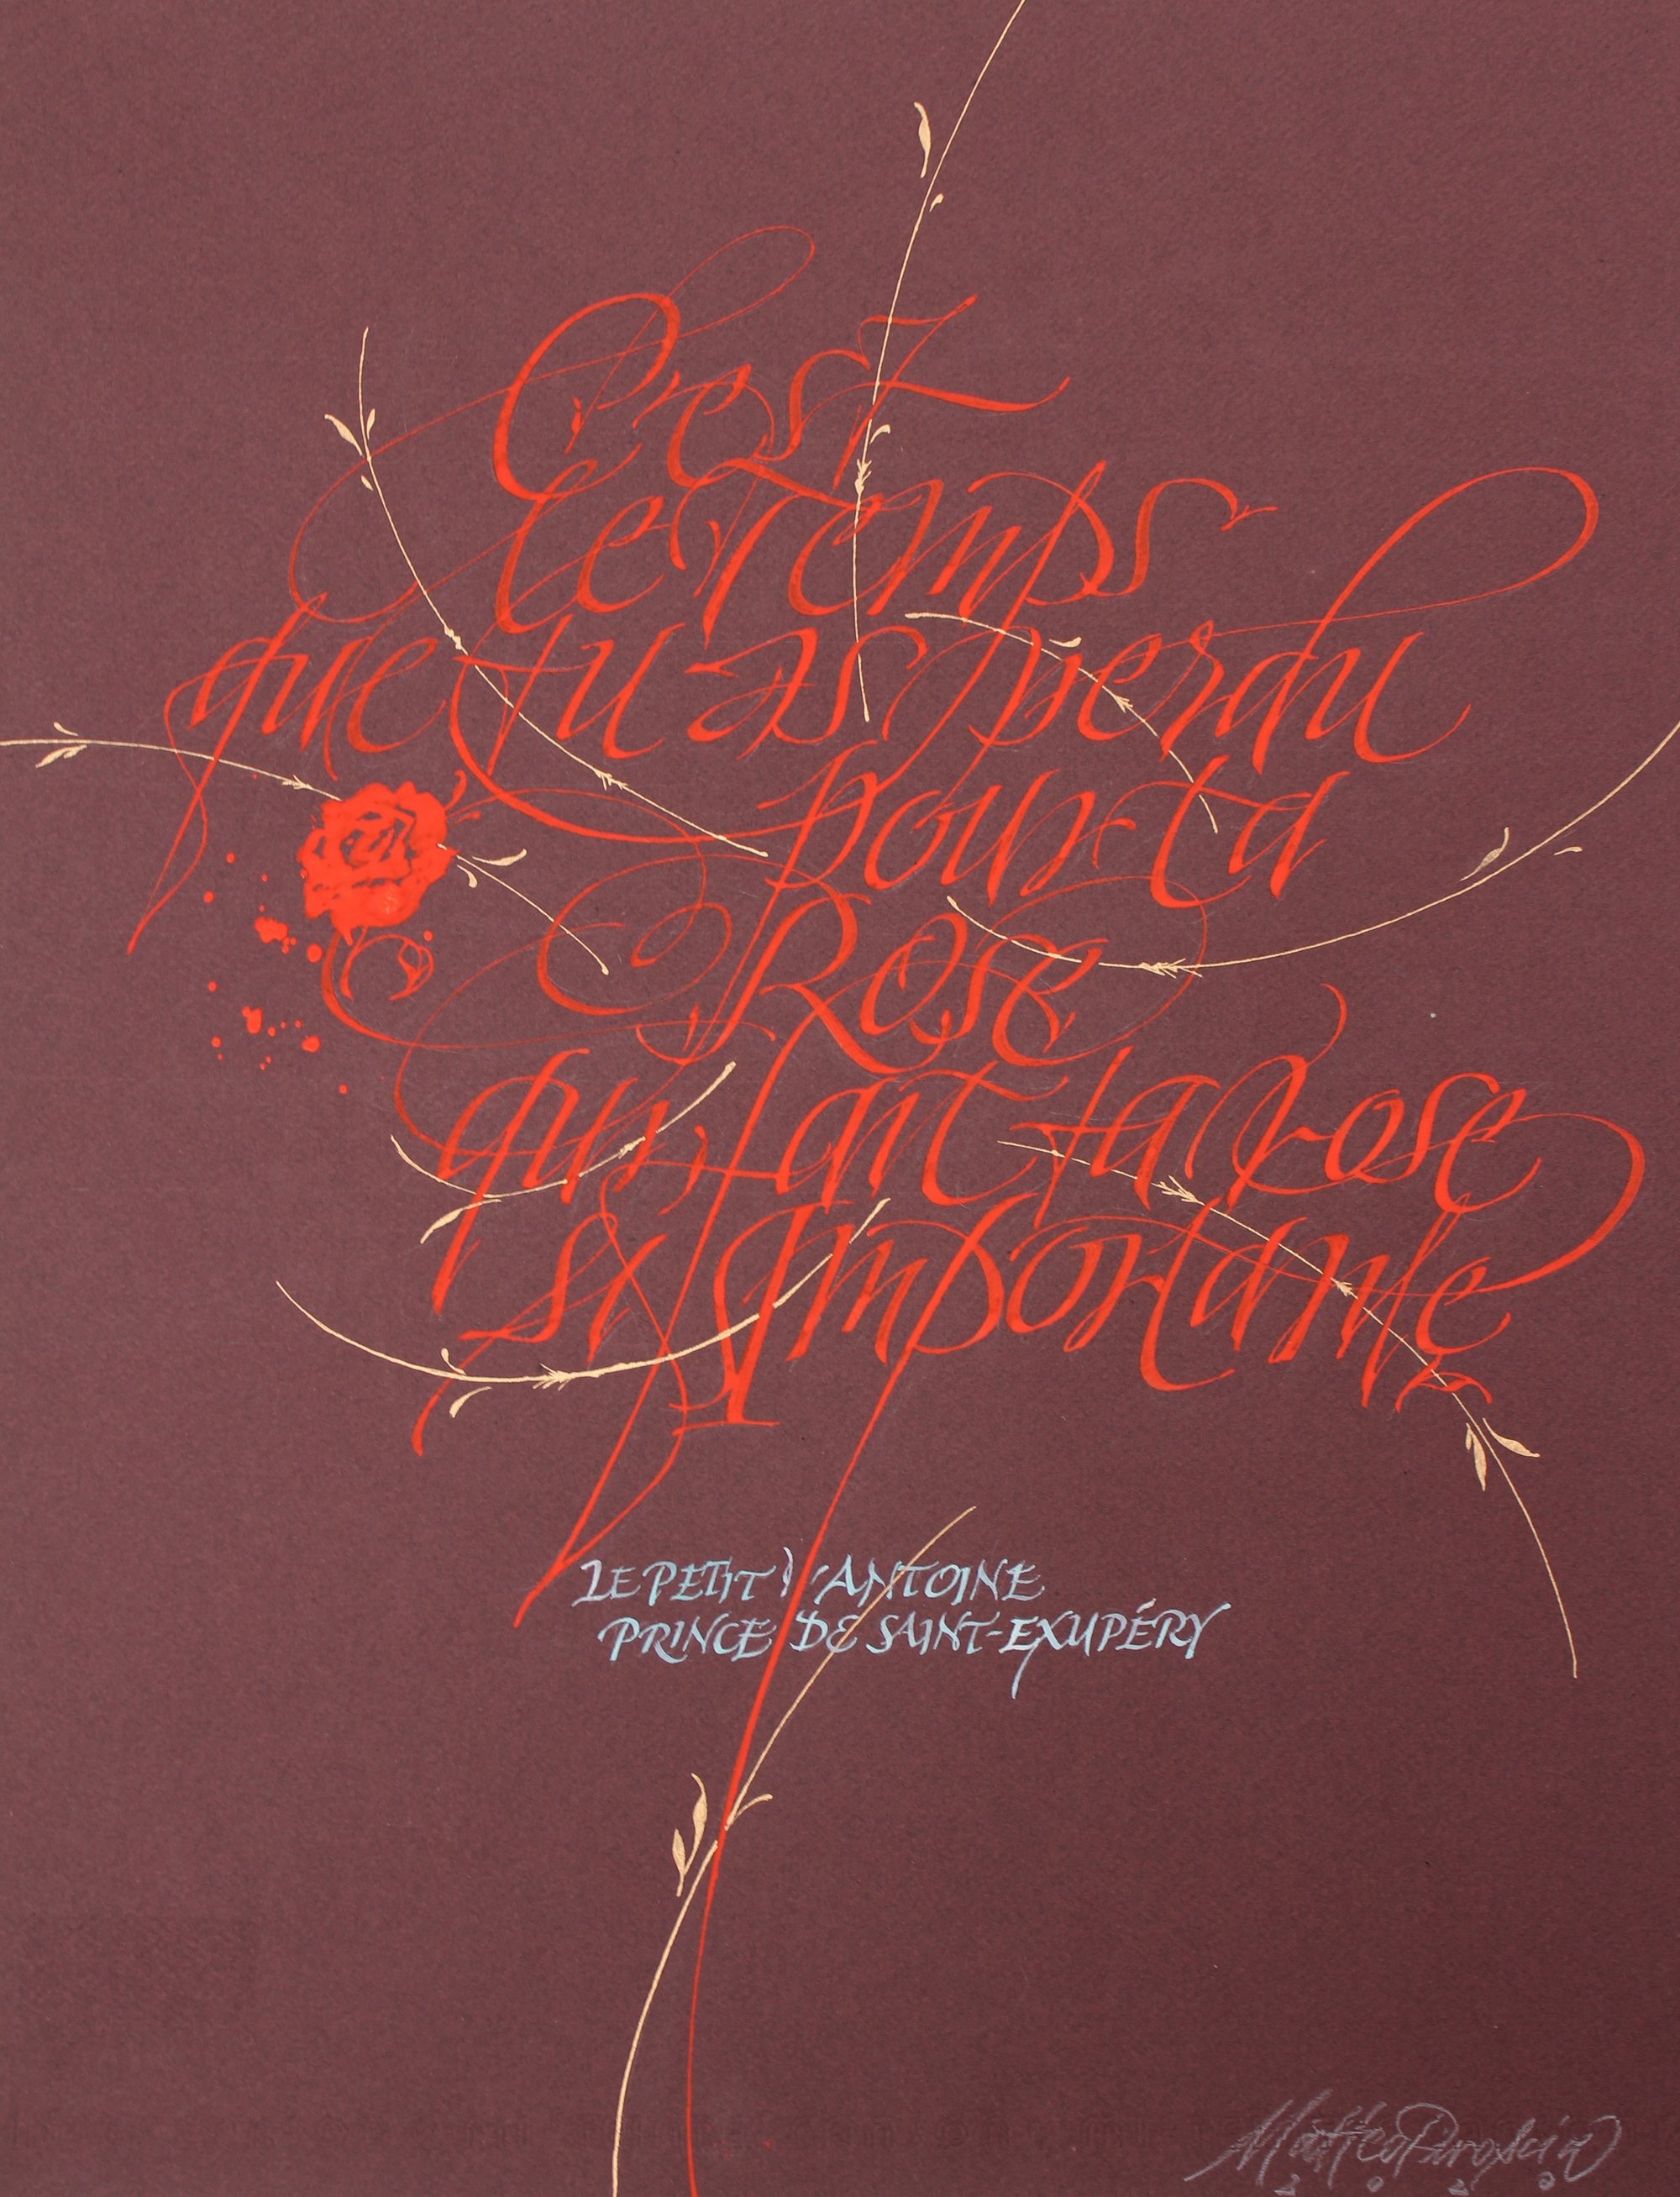 C'est
le temps
que tu as perdu
pour ta
Rose
qui fait ta rose
si importante
LE PETIT PRINCE
D'ANTOINE DE SAINT-EXUPÉRY
Matteo
2020